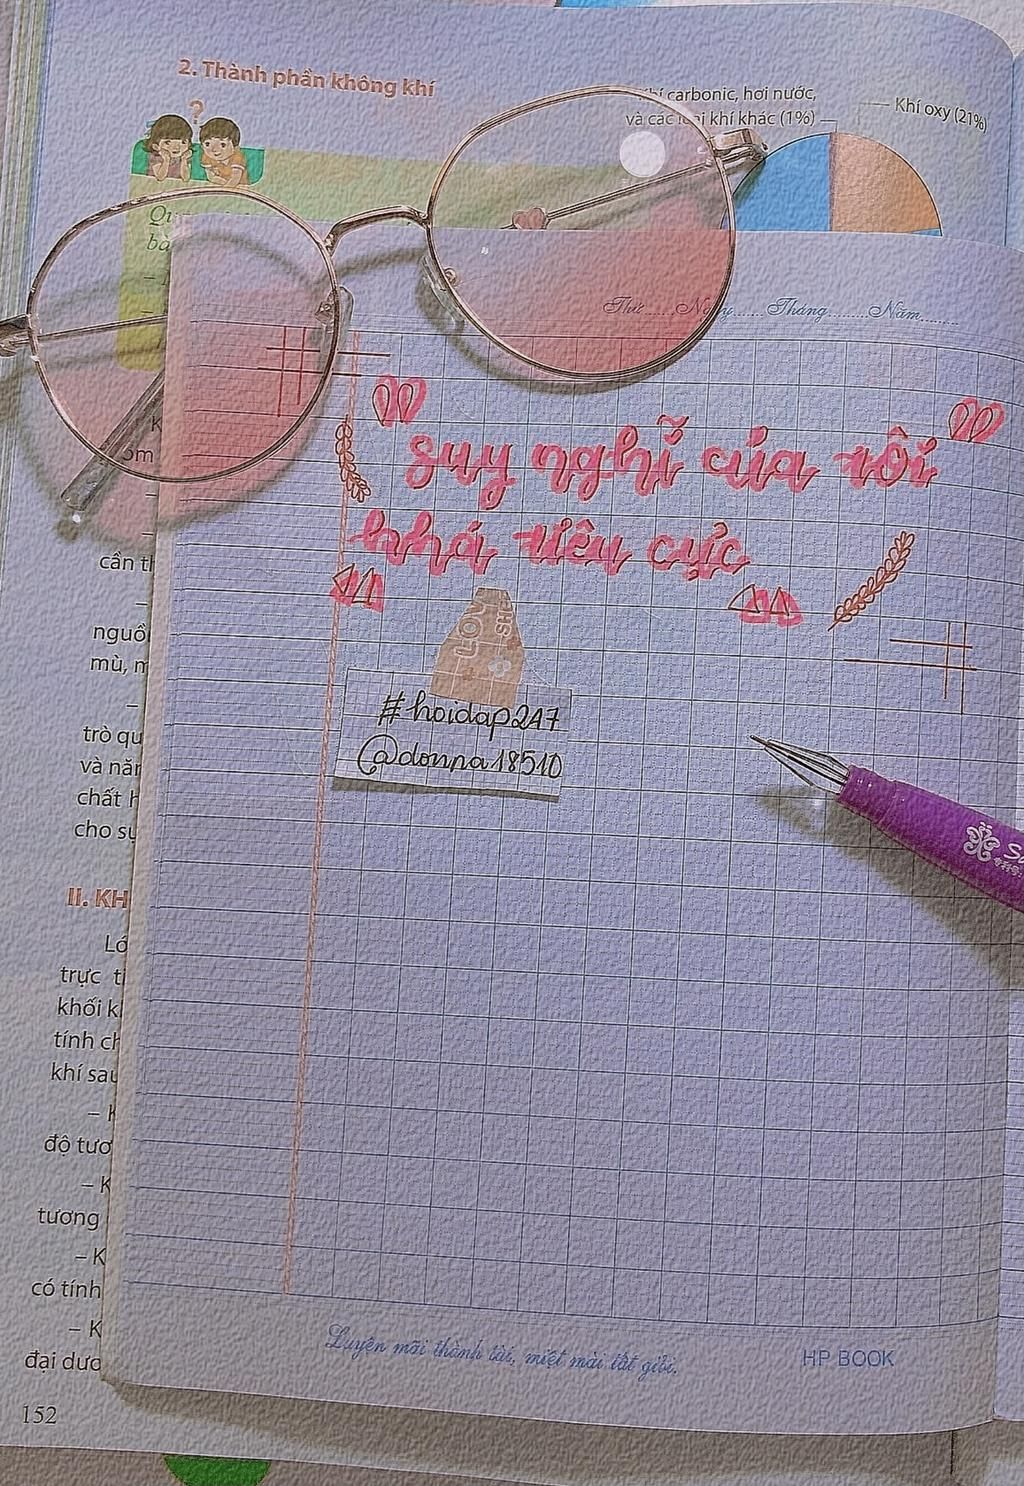 2. Thành phần không khí
?
carbonic, hơi nước,
và các loại khí khác (1%)
Khí oxy (21%)
Thứ......Ngày......Tháng.........Năm.........
"suy nghĩ của tôi
khá tiêu cực"
LOV
SH
#hoidap247
@donna18510
cần th
nguồ
mù, m
trò qu
và năn
chất h
cho sự
II. KH
Lớ
trực ti
khối k
tính ch
khí sau
– K
độ tươ
– K
tương
– K
có tính
– K
đại dươ
Luyện mãi thành tài, miệt mài tất giỏi.
HP BOOK
152